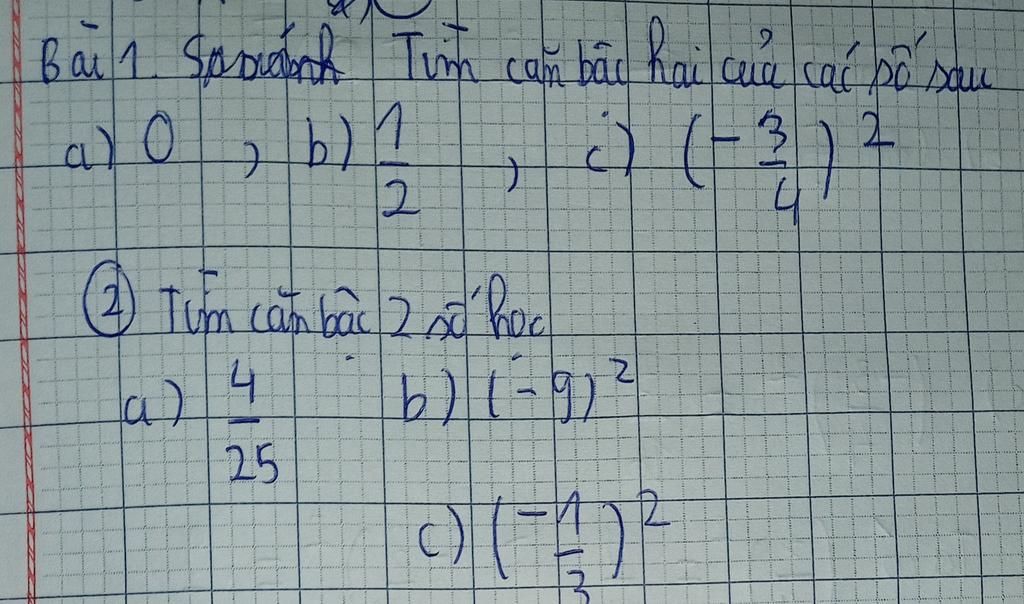 Bài 1. Tìm căn bậc hai của các số sau
a) 0 , b) 1/2 , c) (-3/4)²
② Tìm căn bậc 2 số học
a) 4/25 b) (-9)²
c) (-1/3)²